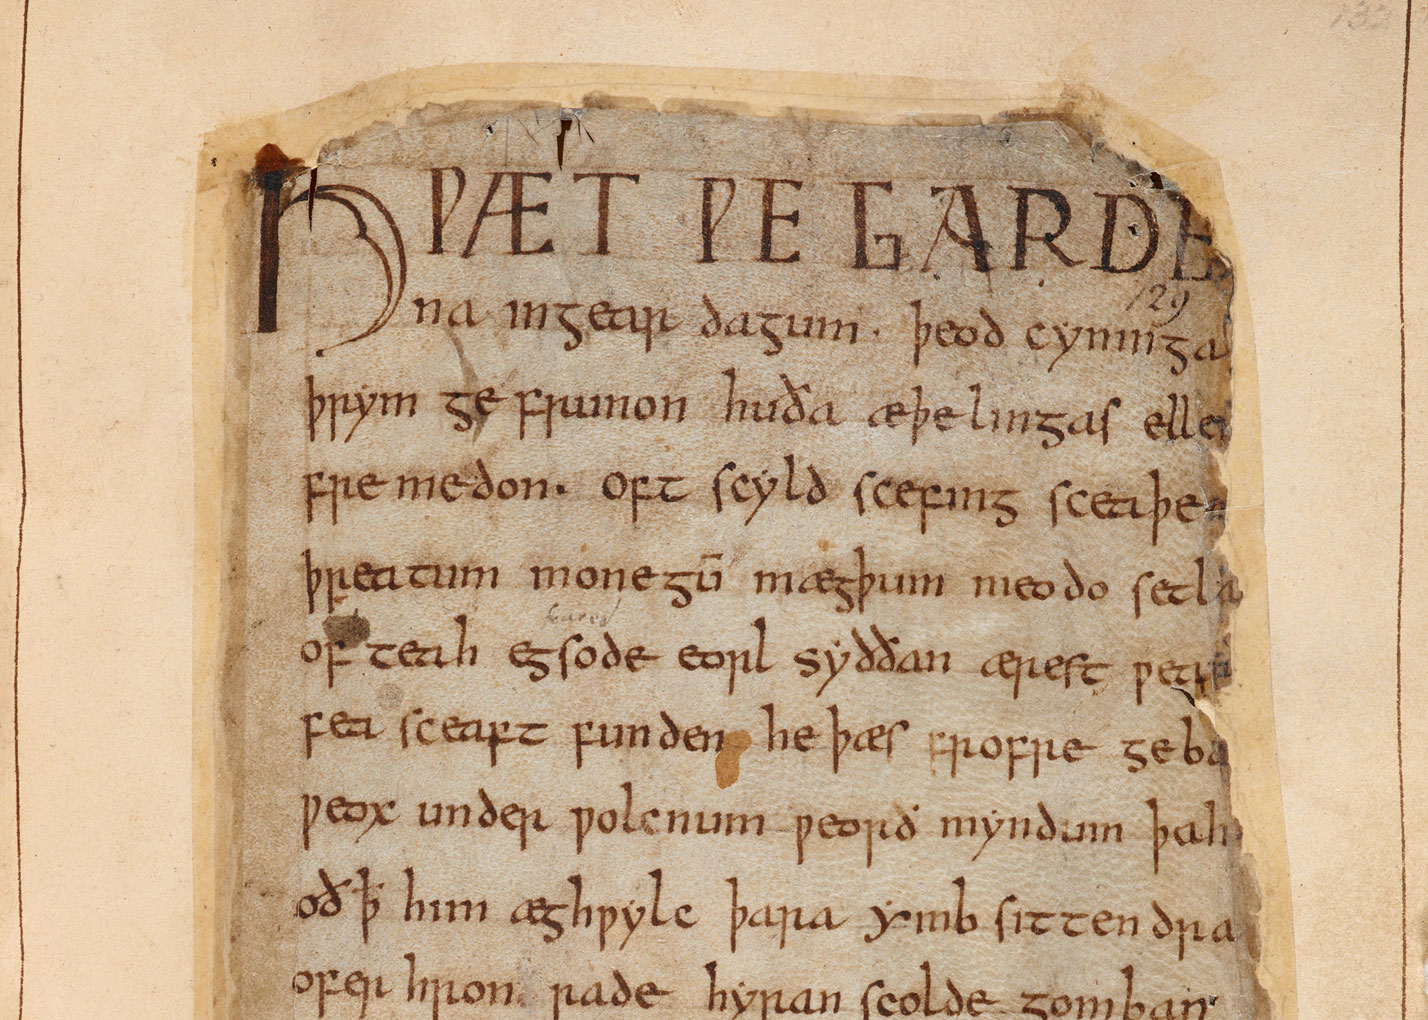 132
HǷÆT ǷE GARDE
129
na in gear dagum · þeod cyninga
þrym ge frunon huða æþelingas ellen
fre medon. oft scyld scefing sceaþe
þreatum monegū mægþum meodo setla
of teah egsode eorl syððan ærest ƿear
fea sceaft funden he þæs frofre geba
ƿeox under ƿolcnum ƿeorð myndum þah
oð ꝥ him æghƿylc þara ymb sittendra
ofer hron rade hyran scolde gomban